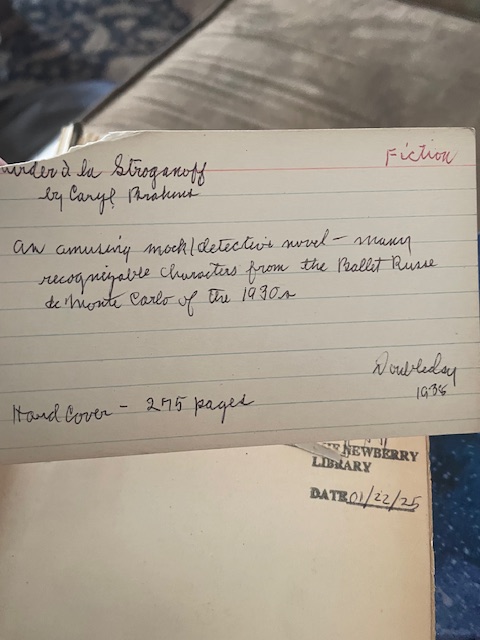 Fiction
urder à la Stroganoff
by Caryl Brahms
An amusing mock/detective novel – many
recognizable characters from the Ballet Russe
de Monte Carlo of the 1930s
Doubleday
1938
Hard Cover – 275 pages
THE NEWBERRY
LIBRARY
DATE 01/22/25